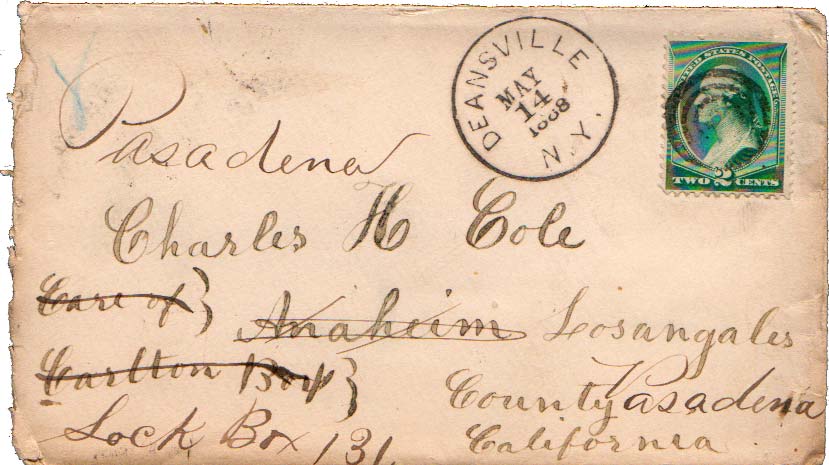 DEANSVILLE N.Y.
MAY
14
1888
UNITED STATES POSTAGE
TWO 2 CENTS
Pasadena
Charles H Cole
Care of }
Anaheim Losangales
Carlton }
County Pasadena
Lock Box 131
California